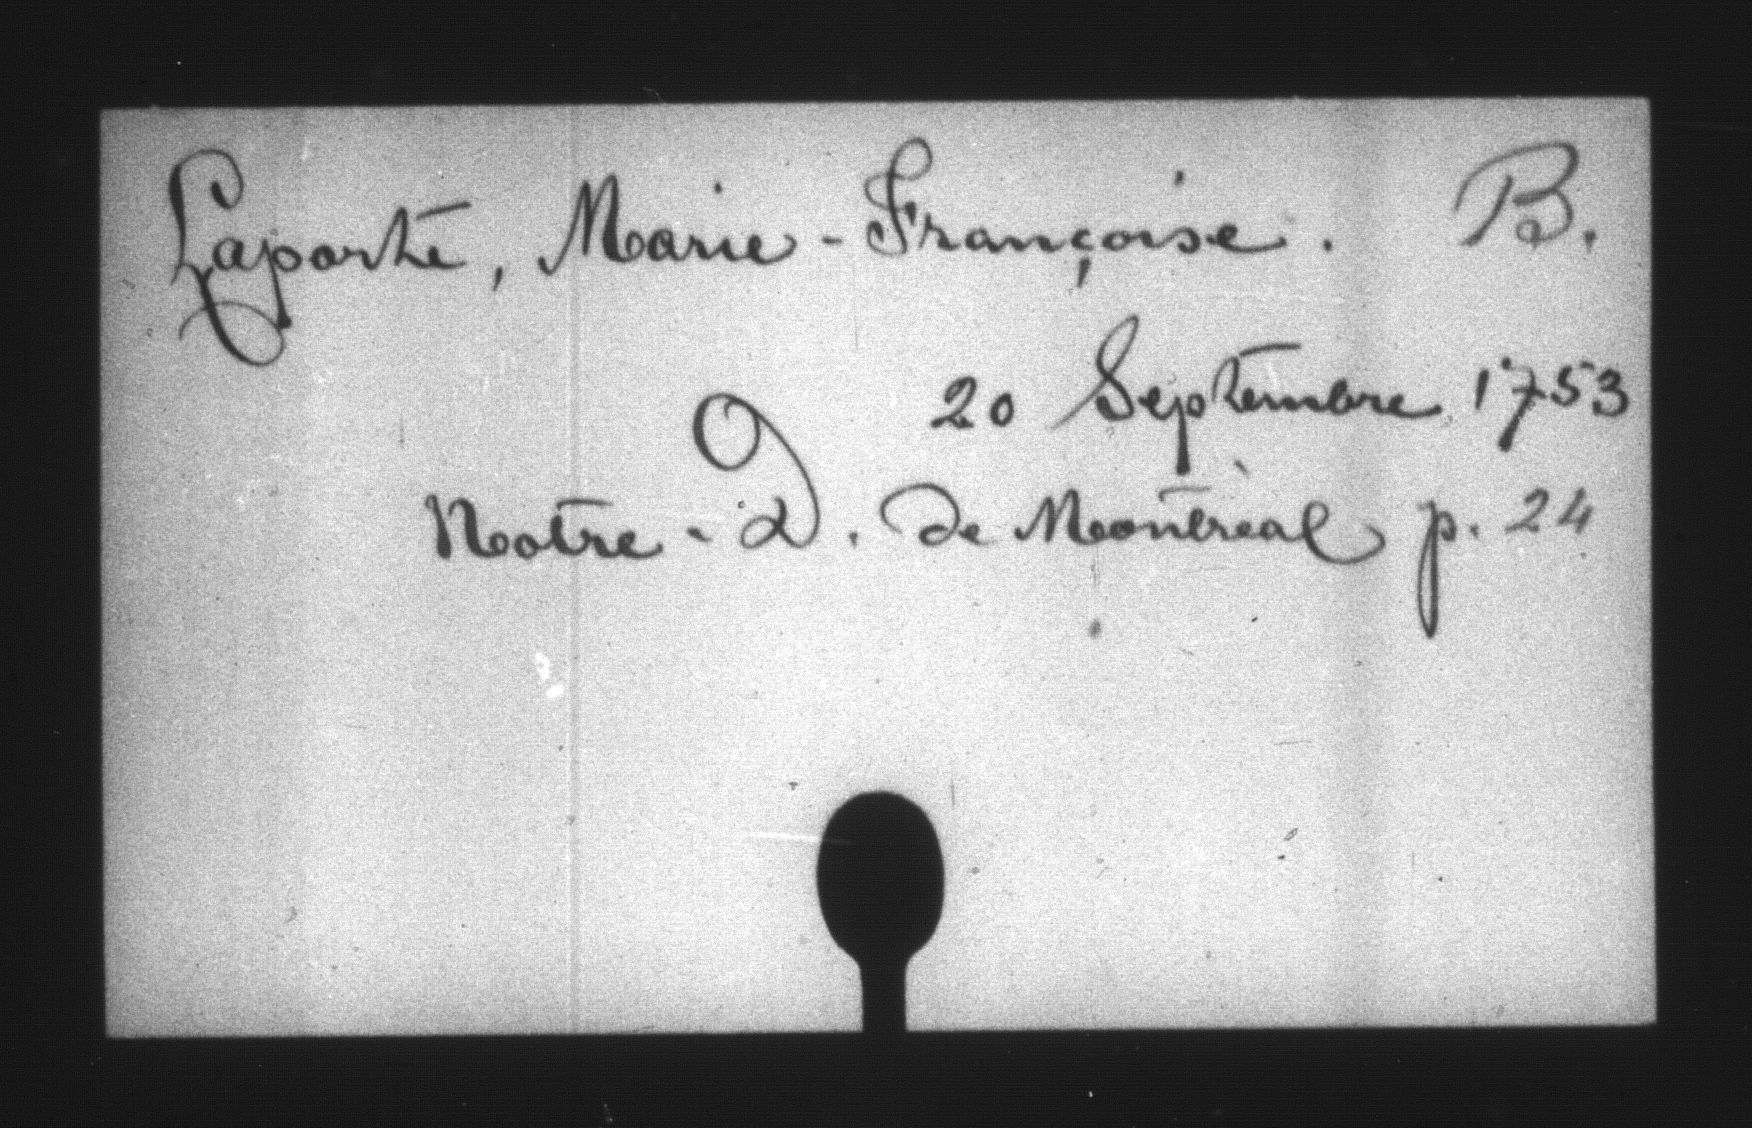 Laporte, Marie-Françoise. B.
20 Septembre 1753
Notre-D. de Montréal p. 24